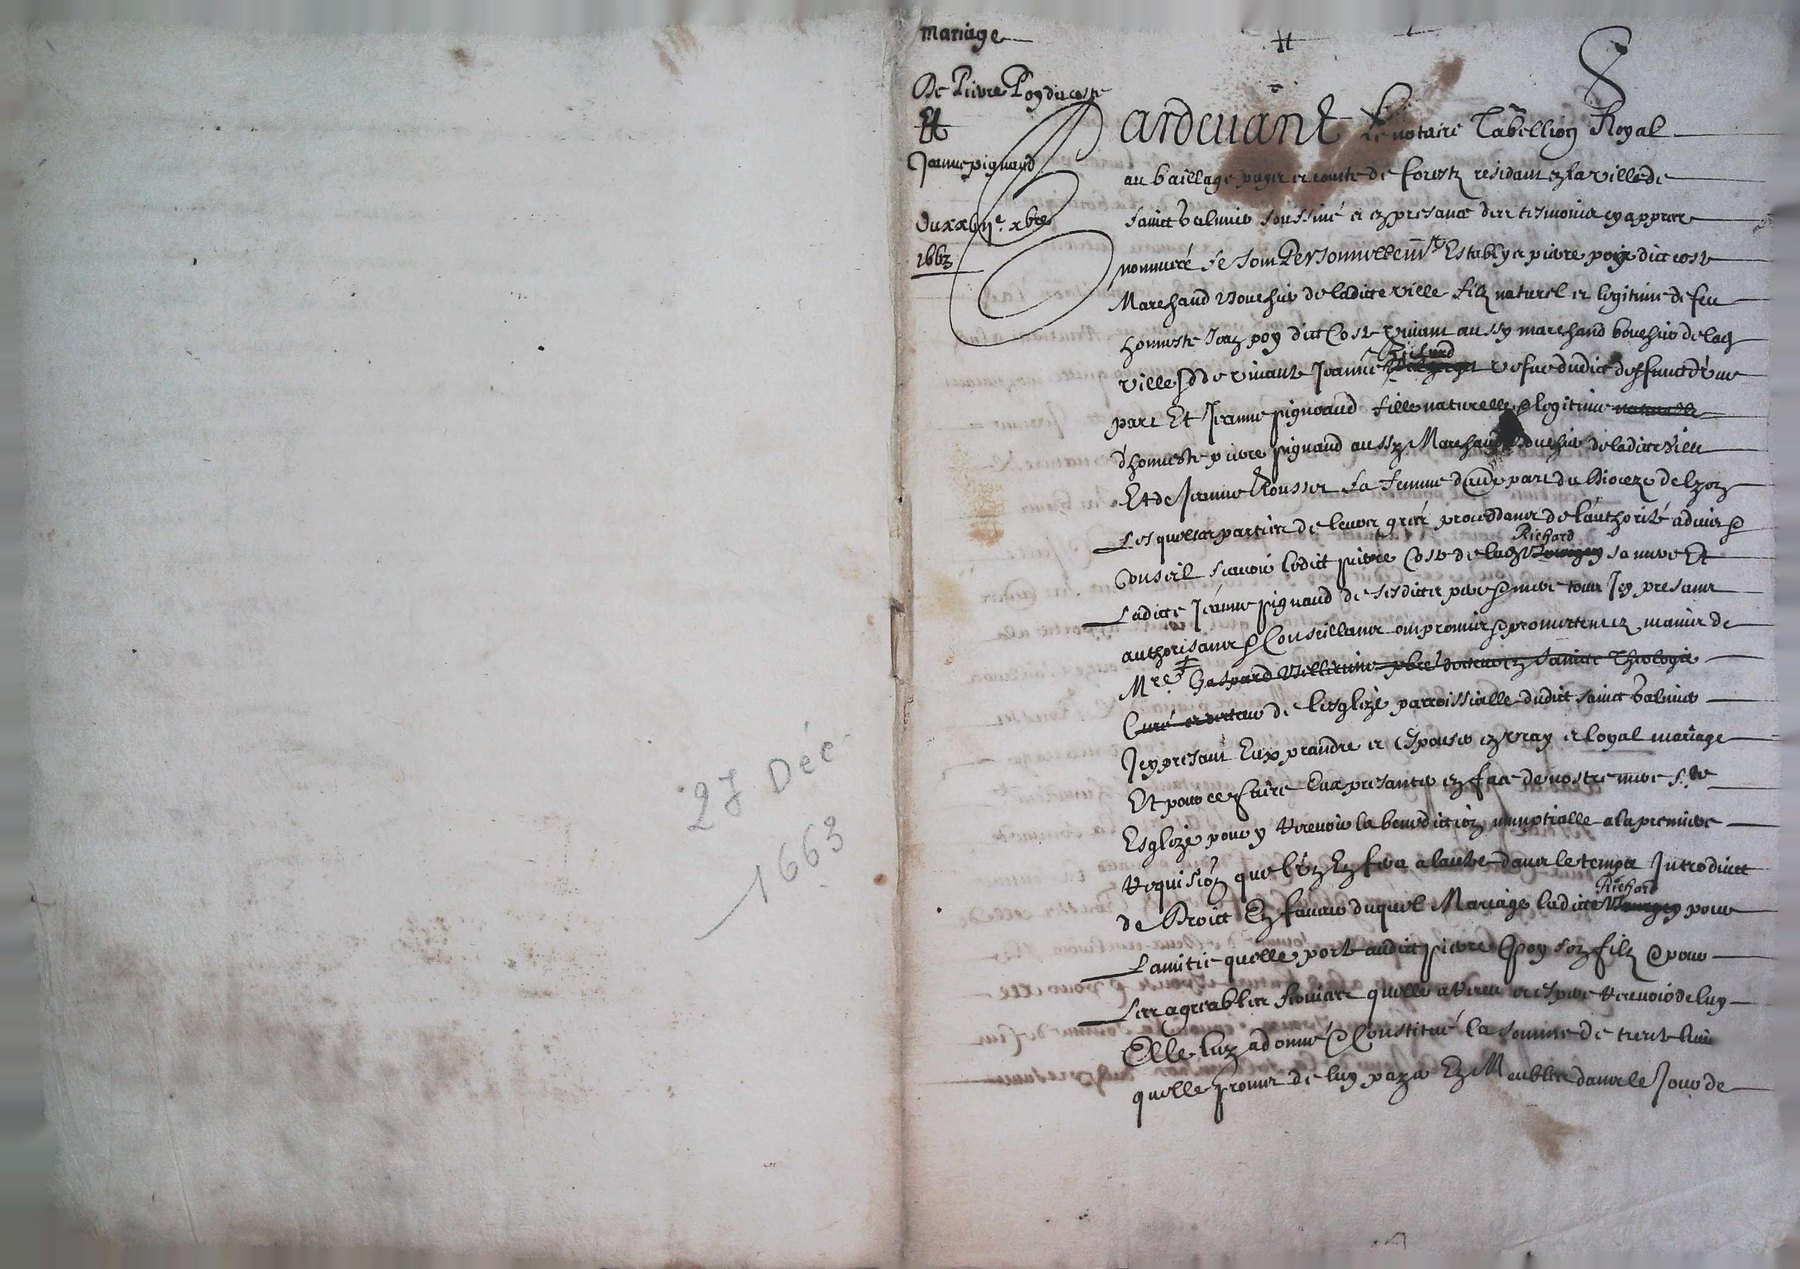 27 Déc
1663
mariage
De Pierre Poy dit Cost
Et
Jeanne pignaud
Du xxvii.e xbre
1663
Pardevant Le notaire Tabellion Royal
au baillage pays et comte de forestz residant en la ville de
sainct Galmier soussiné et en presance des tesmoins cy appres
nommés se sont Personnellemt Establys pierre poy dict cost
Marchand bouchier de ladicte ville filz naturel et legitime de feu
honneste poy dict Cost vivant aussy marchand boucher de lad
ville & de vivante Jeanne Richard vefve dudict deffunct d'une
part Et Jeanne pignaud fille naturelle & legitime naturelle
d'honneste pierre pignaud aussy Marchand bouchier de ladicte ville
Et de Jeanne Rousset sa femme d'autre part du Dioceze de Lyon
Lesquelles parties de leurs grés proceddans de l'authorité advis &
Conseil sçavoir ledict pierre Cost de lad Richard sa mere Et
Ladicte Jeanne pignaud de sesdicts pere & mere tous Icy presans
authorisans & Conseillans ont promis & promettent ez mains de
Mre Gaspard prbre docteur en saincte Theologie
Curé et recteur de l'esglize parroissialle dudict sainct Galmier
Icy presant Eux prandre et Espouser en vray et loyal mariage
Et pour ce faire Eux presanter en face de nostre mere ste
Esglize pour y recevoir la benediction nuptialle a la premiere
requision que l'un En fera a l'autre dans le temps Introduict
de Droict En faveur duquel Mariage ladicte Richard pour
L'amitié quelle porte audict pierre poy son filz & pour
Les agreables services quelle a receu et espere recevoir de luy
Elle luy a donné & Constitué la somme de trente livres
quelle promet de luy payer En Meubles dans le Jour de